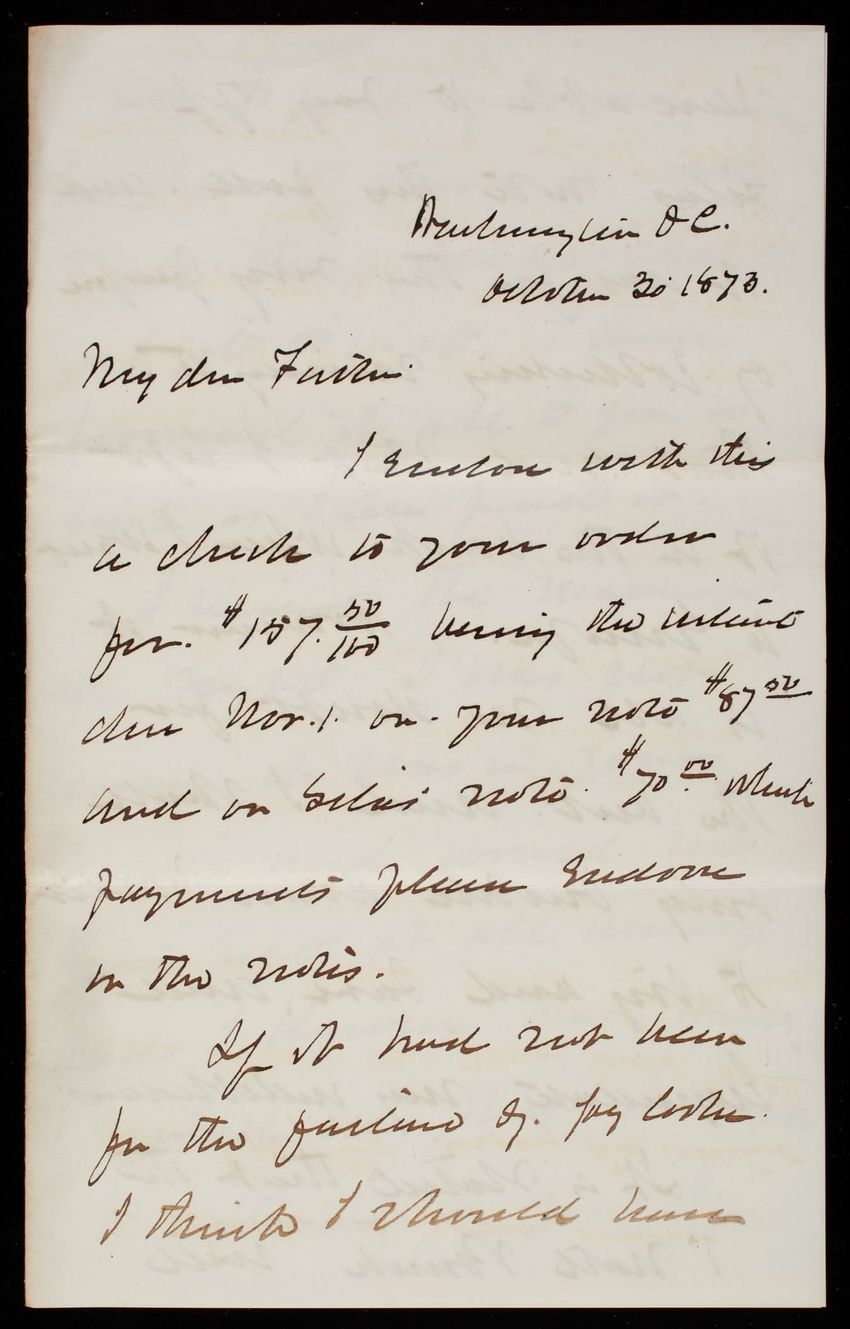 Washington D C.
October 30 1873.
My dear Father.
I enclose with this
a check to your order
for. $157. 50/100 being the interest
due Nov. 1. on. your note $87 50
and on Silas' note. $70 00. which
payments please Endorse
on the notes.
If it had not been
for the failure of. Jay Cooke.
I think I should have